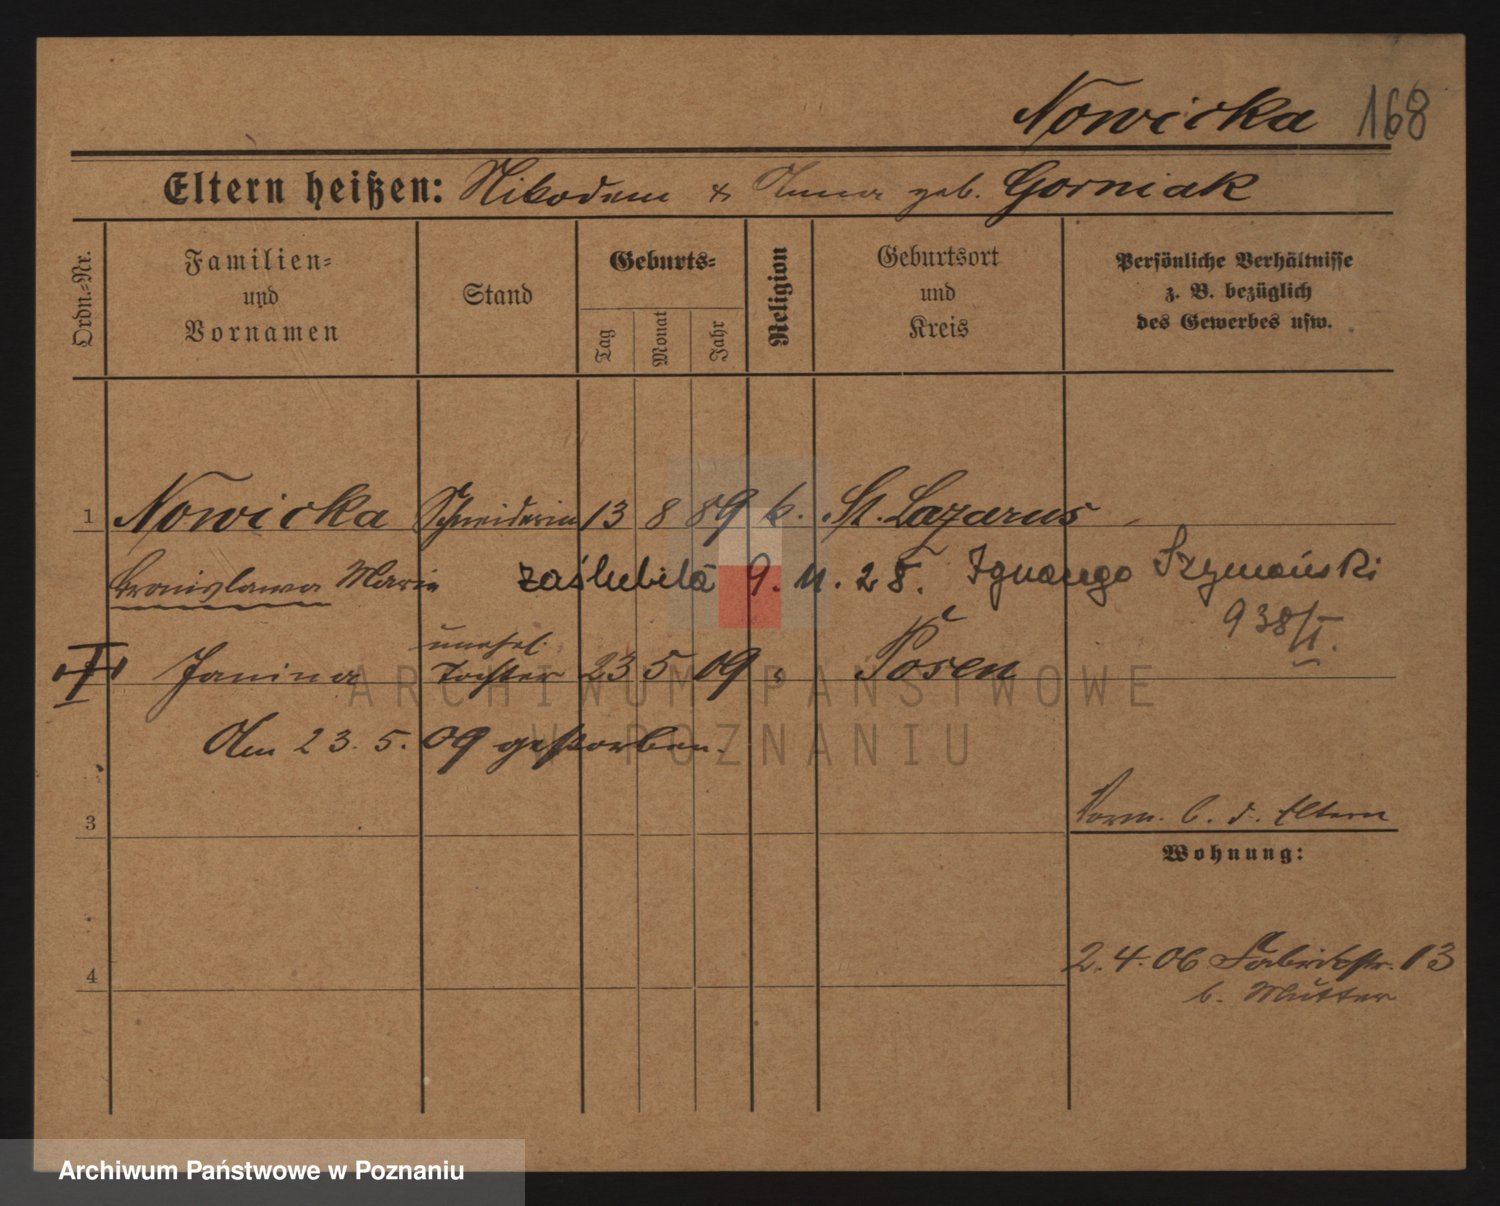 Nowicka 168
Eltern heißen: Nikodem & Anna geb. Gorniak
Ordn.-Nr.
Familien-
und
Vornamen
Stand
Geburts-
Tag
Monat
Jahr
Religion
Geburtsort
und
Kreis
Persönliche Verhältnisse
z. B. bezüglich
des Gewerbes usw.
1 Nowicka Schneiderin 13 8 89 k. St. Lazarus
Bronislawa Marie zaślubiła 9. 11. 28. Ignacego Szymański
938/I.
unehel.
Janina Tochter 23 5 09 Posen
Am 23. 5. 09 gestorben.
3
Vorm. b. d. Eltern
Wohnung:
4
2. 4. 06 Fabrikstr. 13
b. Mutter
ARCHIWUM PAŃSTWOWE
W POZNANIU
Archiwum Państwowe w Poznaniu